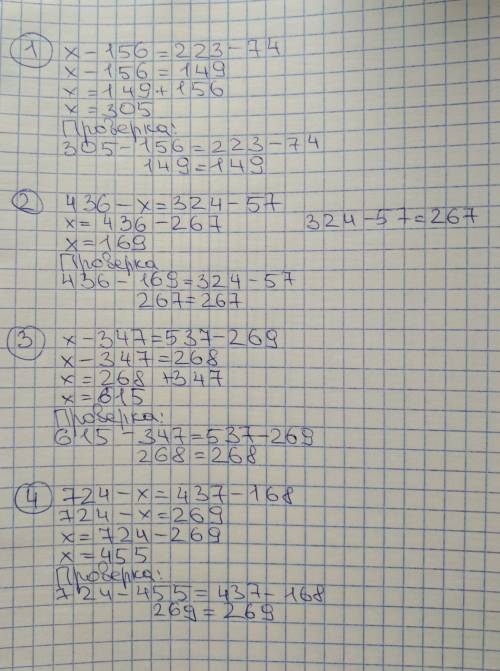 1
x - 156 = 223 - 74
x - 156 = 149
x = 149 + 156
x = 305
Проверка:
305 - 156 = 223 - 74
149 = 149
2
436 - x = 324 - 57
x = 436 - 267 324 - 57 = 267
x = 169
Проверка
436 - 169 = 324 - 57
267 = 267
3
x - 347 = 537 - 269
x - 347 = 268
x = 268 + 347
x = 615
Проверка:
615 - 347 = 537 - 269
268 = 268
4
724 - x = 437 - 168
724 - x = 269
x = 724 - 269
x = 455
Проверка:
724 - 455 = 437 - 168
269 = 269